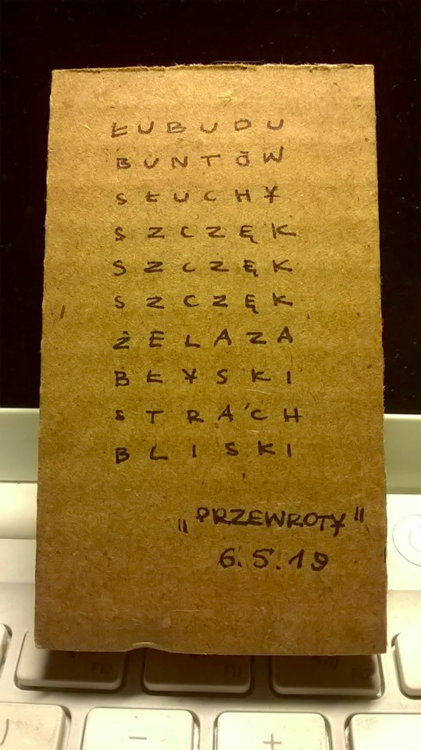 ŁUBUDU
BUNTÓW
SŁUCHY
SZCZĘK
SZCZĘK
SZCZĘK
ŻELAZA
BŁYSKI
STRACH
BLISKI
"PRZEWROTY"
6.5.19